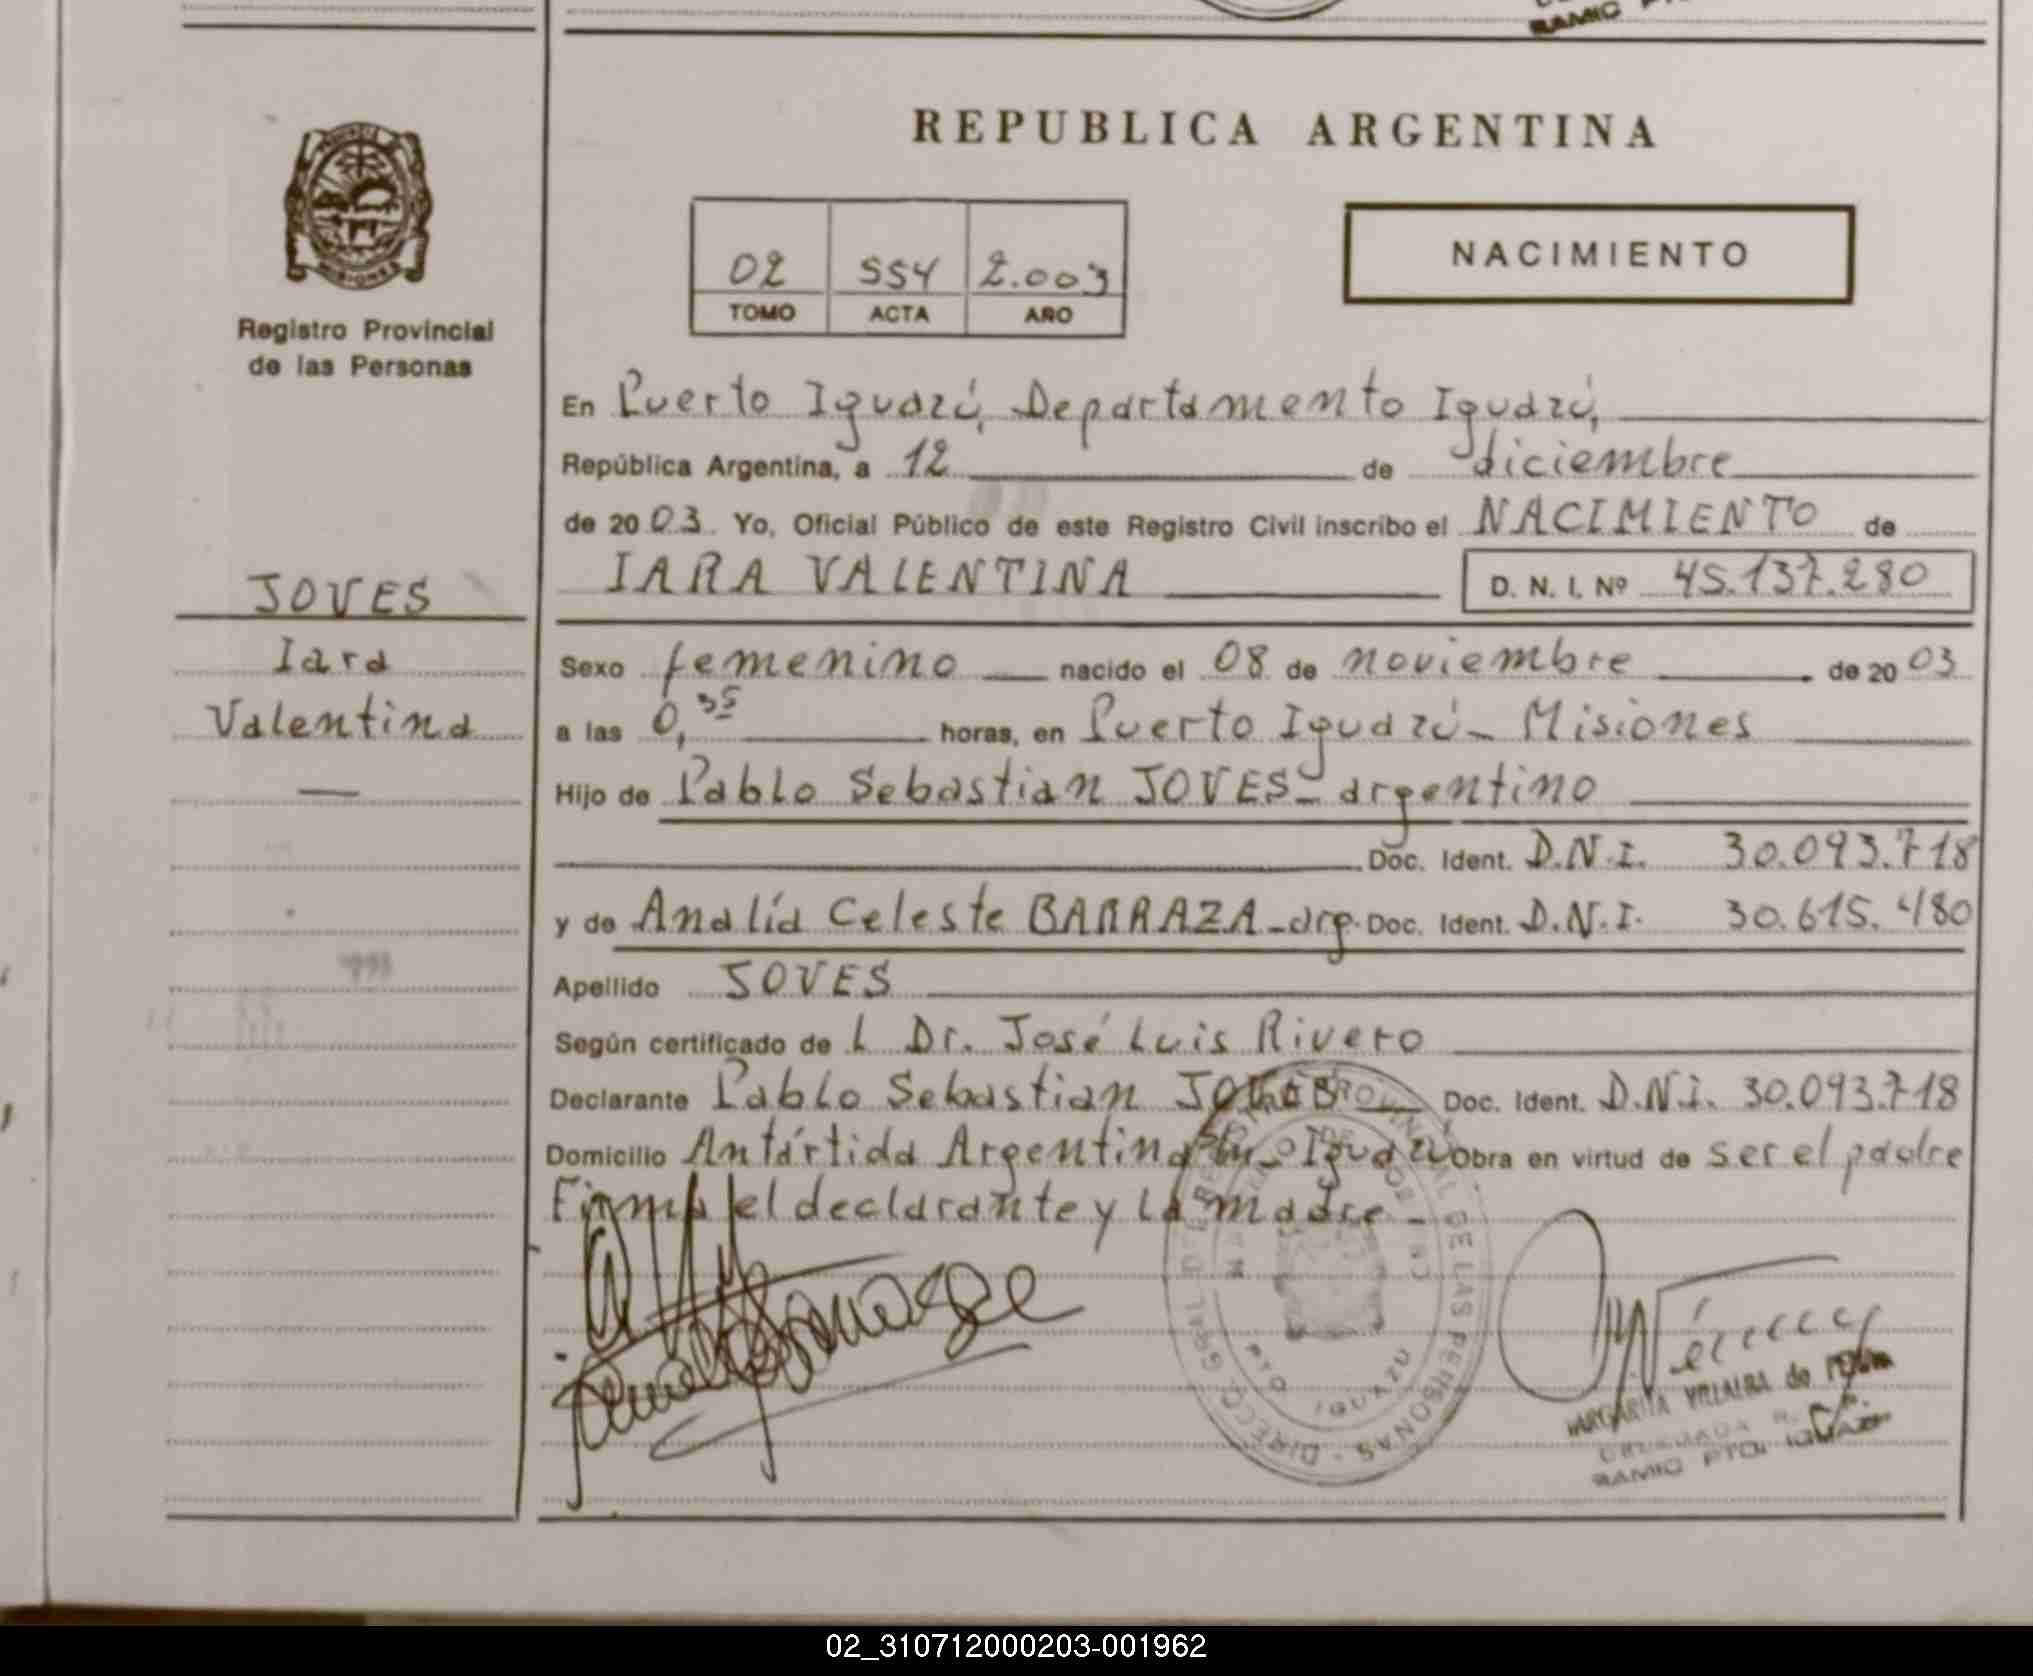 RAMIC
REPUBLICA ARGENTINA
NACIMIENTO
02 554 2.003
TOMO ACTA AÑO
PROVINCIA
MISIONES
Registro Provincial
de las Personas
JOVES
Iara
Valentina
En Puerto Iguazú, Departamento Iguazú,
República Argentina, a 12 de diciembre
de 2003. Yo, Oficial Público de este Registro Civil inscribo el NACIMIENTO de
IARA VALENTINA D. N. I. Nº 45.137.280
Sexo femenino nacido el 08 de noviembre de 2003
a las 0,35 horas, en Puerto Iguazú - Misiones
Hijo de Pablo Sebastian JOVES - argentino
Doc. Ident. D.N.I. 30.093.718
y de Analía Celeste BARRAZA - arg. Doc. Ident. D.N.I. 30.615.480
Apellido JOVES
Según certificado de l Dr. José Luis Rivero
Declarante Pablo Sebastian JOVES Doc. Ident. D.N.I. 30.093.718
Domicilio Antártida Argentina s/n - Iguazú Obra en virtud de ser el padre
Firma el declarante y la madre -
DIRECC. GRAL. DEL REGISTRO PROVINCIAL DE LAS PERSONAS
PTO IGUAZU
MARGARITA VILLALBA de
DELEGADA
RAMIC PTO. IGUAZU
02_310712000203-001962